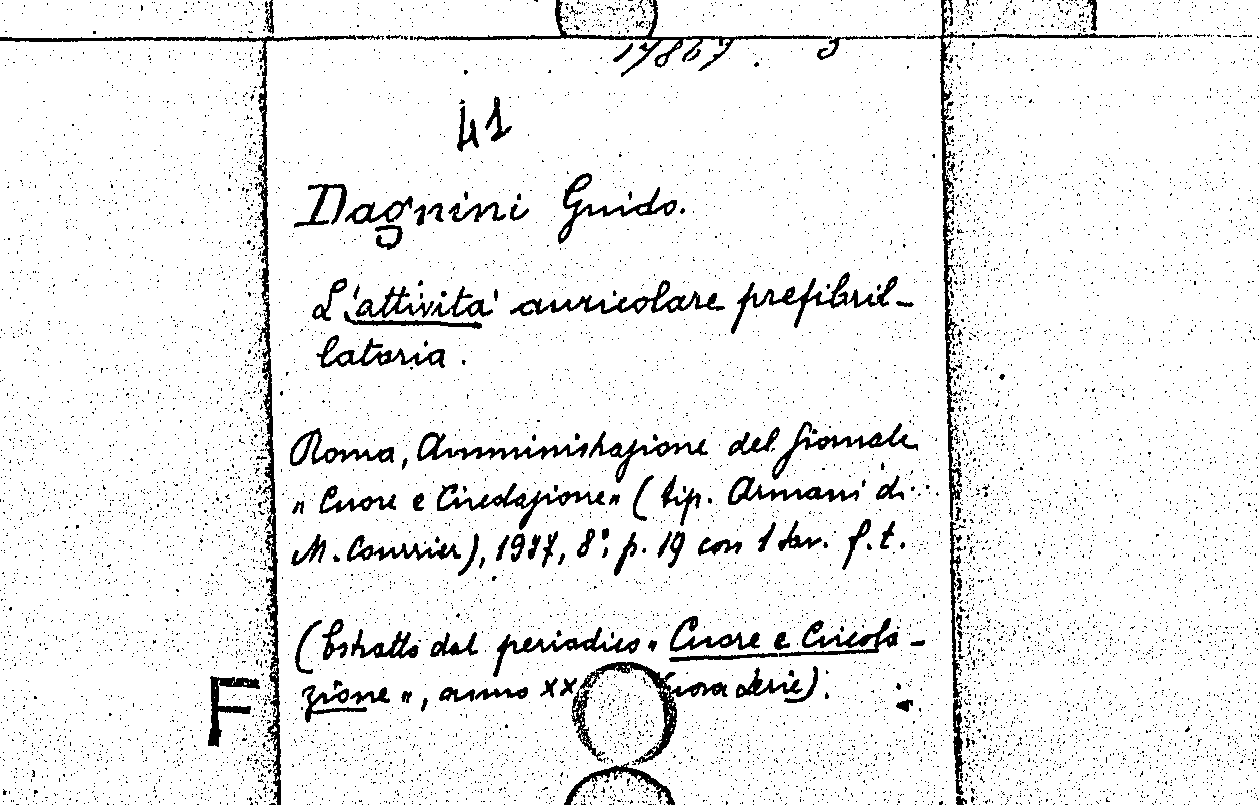 17867. 3
41
Dagnini Guido.
L'attivita' auricolare prefibril-
latoria.
Roma, Amministrazione del Giornale
"Cuore e Circolazione" (tip. Armani di
M. Courrier), 1937, 8°, p. 19 con 1 tav. f.t.
(Estratto dal periodico "Cuore e Circola-
zione", anno XX nuova Serie).
F